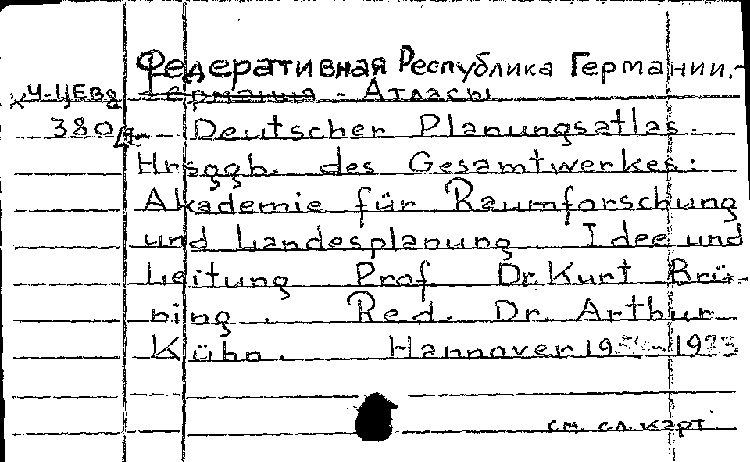 Федеративная Республика Германии.-
Ч-ЦЕВ2 Германия - Атласы
380 Deutscher Planungsatlas.
Hrsggb. des Gesamtwerkes:
Akademie für Raumforschung
und Landesplanung Idee und
Leitung Prof. Dr. Kurt Brü-
ning. Red. Dr. Arthur
Kühn. Hannover 1973
см. сл. карт.